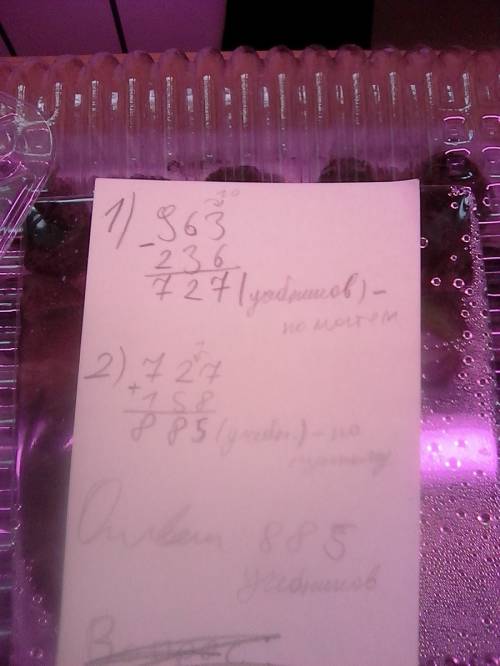 1) 963
- 236
727 (учебников) -
по матем
2) 727
+ 158
885 (учебн.) - по
русскому
Ответ 885
учебников